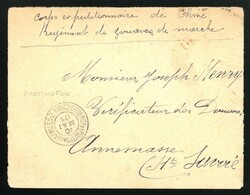 Corps expeditionnaire de Chine
Régiment de zouaves de marche
Monsieur Joseph Henry
Vérificateur des Douanes
Annemasse
Hte Savoie
10
MAI
01